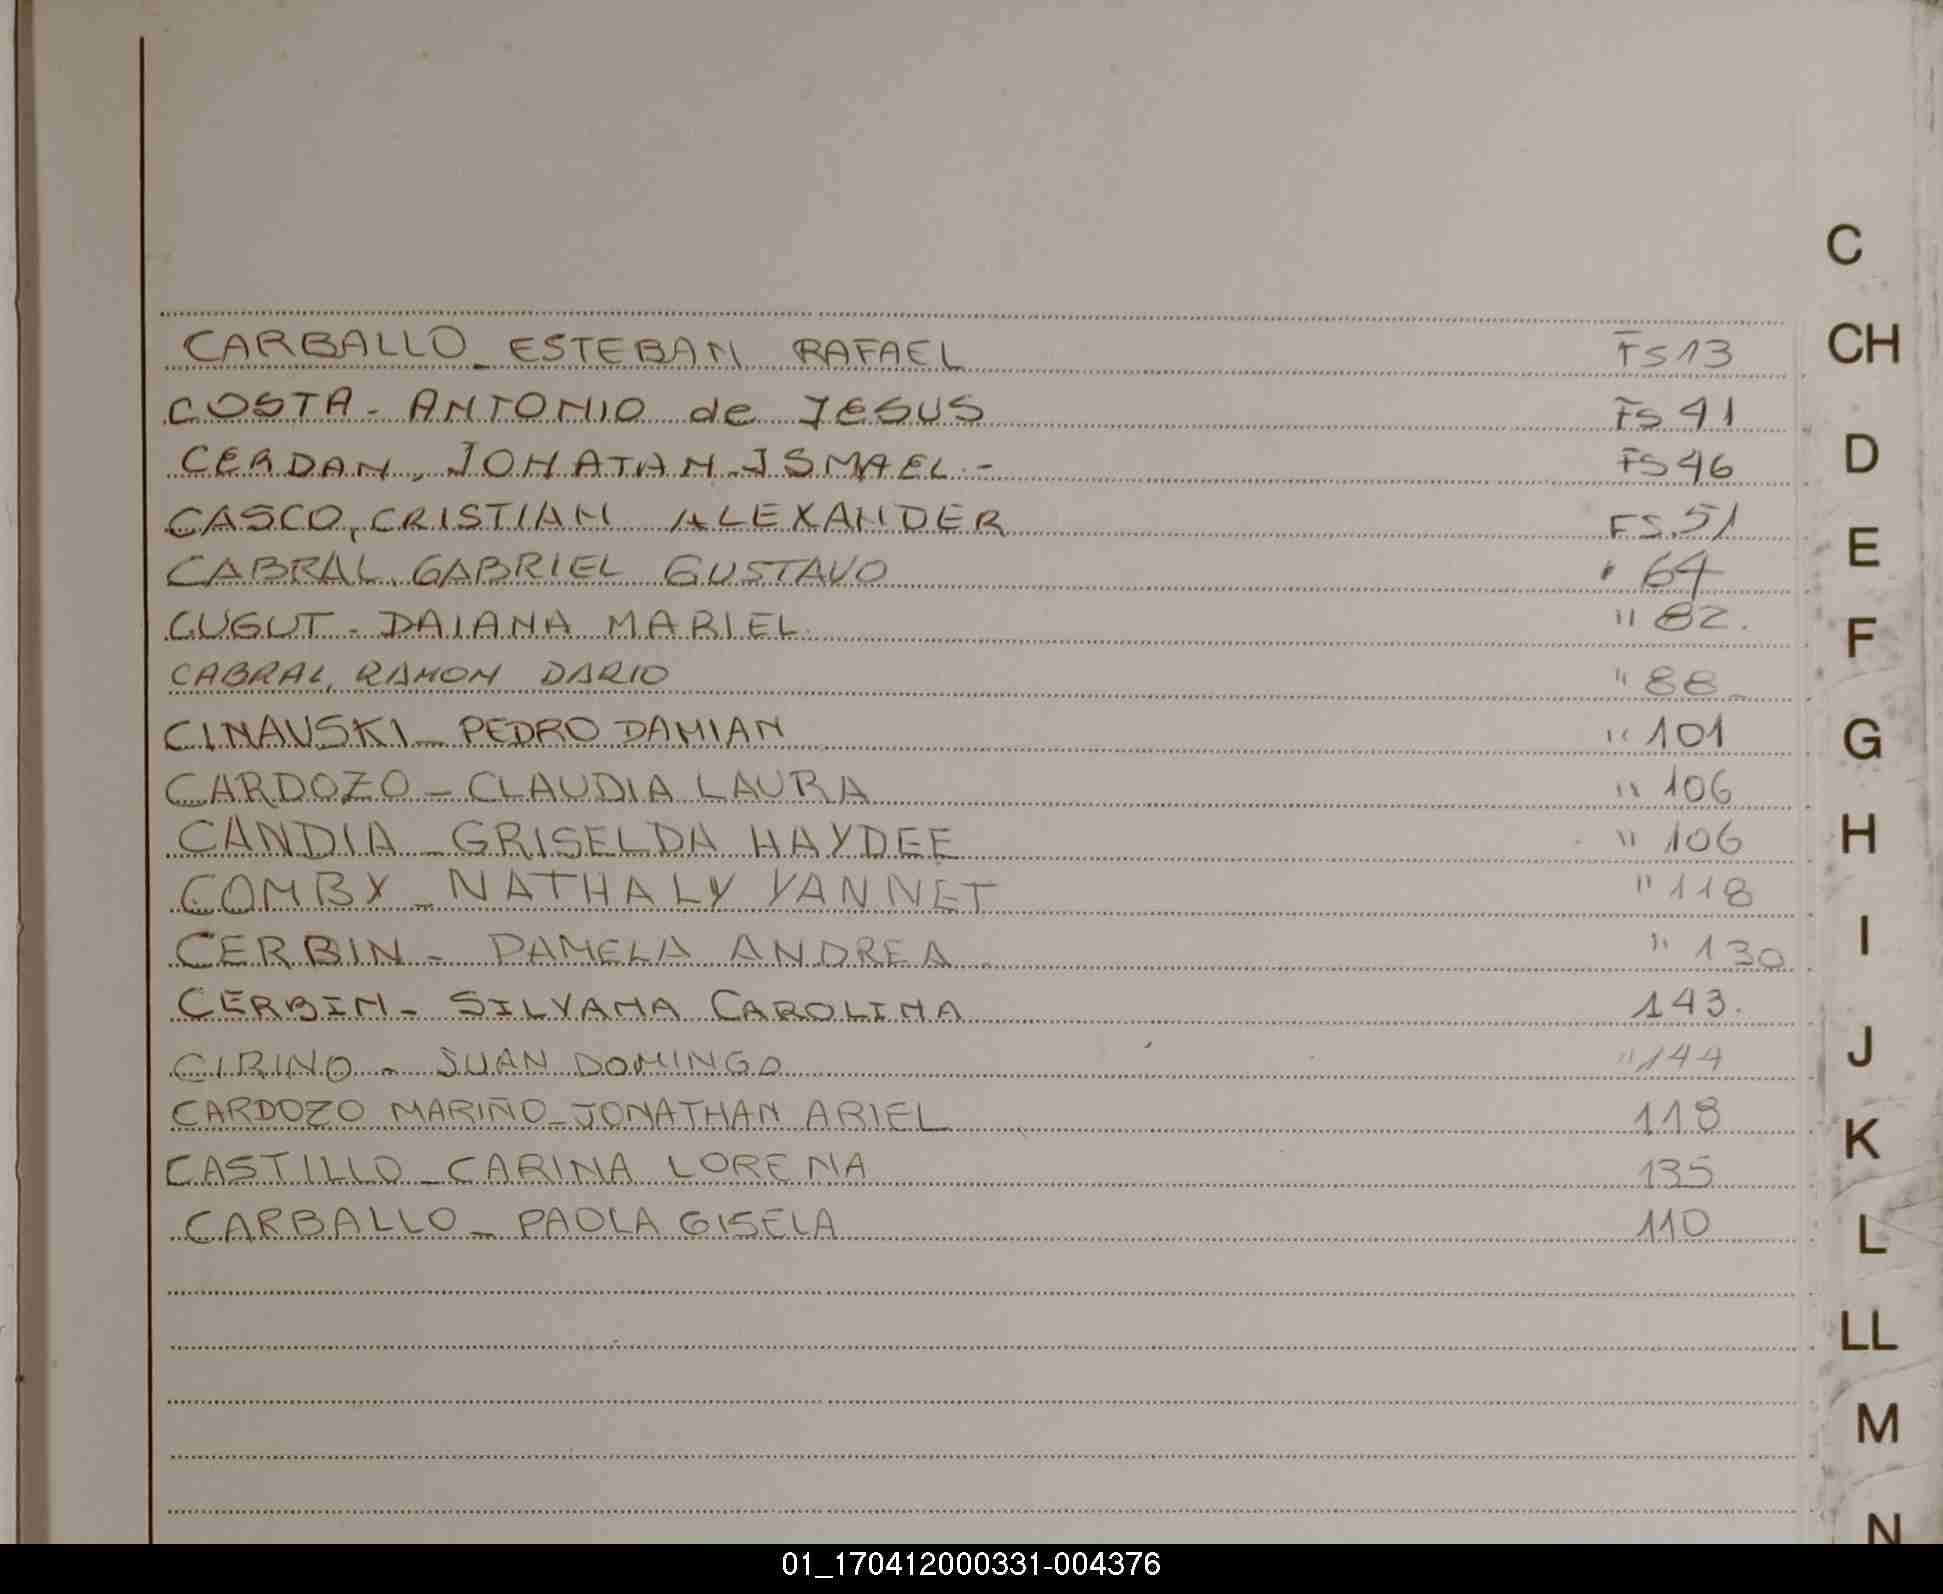 CARBALLO - ESTEBAN RAFAEL FS 13
COSTA - ANTONIO de JESUS FS 41
CERDAN, JONATAN ISMAEL.- FS 46
CASCO, CRISTIAN ALEXANDER FS. 51
CABRAL, GABRIEL GUSTAVO " 64
CUGUT - DAIANA MARIEL. " 82.
CABRAL, RAMON DARIO " 88-
CINAVSKI - PEDRO DAMIAN " 101
CARDOZO - CLAUDIA LAURA " 106
CANDIA - GRISELDA HAYDEE " 106
COMBY - NATHALY YANNET " 118
CERBIN - PAMELA ANDREA " 130
CERBIN - SILVANA CAROLINA 143.
CIRINO - JUAN DOMINGO " 144
CARDOZO MARIÑO - JONATHAN ARIEL 118
CASTILLO - CARINA LORENA 135
CARBALLO - PAOLA GISELA 110
C
CH
D
E
F
G
H
I
J
K
L
LL
M
N
01_170412000331-004376